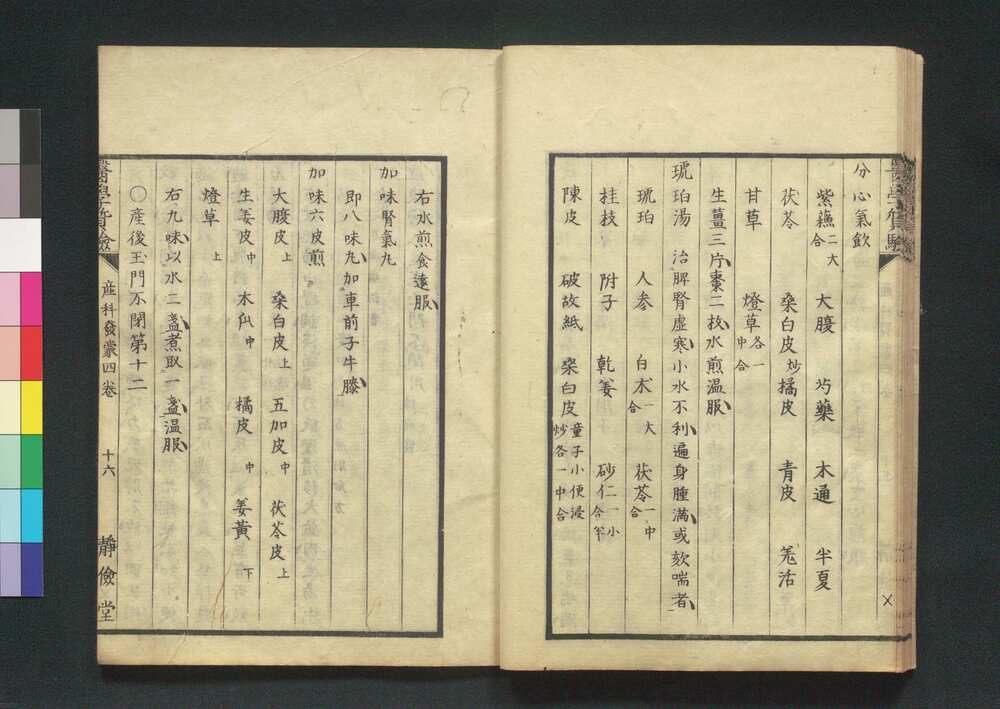 分心氣飲
紫蘓 二大合 大腹 芍藥 木通 半夏
茯苓 桑白皮 炒 橘皮 青皮 羌活
甘草 燈草 各一中合
生薑三片棗二枚水煎温服
琥珀湯 治脾腎虛寒小水不利遍身腫滿或欬喘者
琥珀 人参 白朮 一大合 茯苓 一中合
桂枝 附子 乾姜 砂仁 二一小合半
陳皮 破故紙 桑白皮 童子小便浸炒各一中合
右水煎食遠服
加味腎氣丸
即八味丸加車前子牛膝
加味六皮煎
大腹皮 上 桑白皮 上 五加皮 中 茯苓皮 上
生姜皮 中 木瓜 中 橘皮 中 姜黃 下
燈草 上
右九味以水二盞煮取一盞温服
○産後玉門不閉第十二
醫學質驗 産科發蒙四卷 十六 靜儉堂